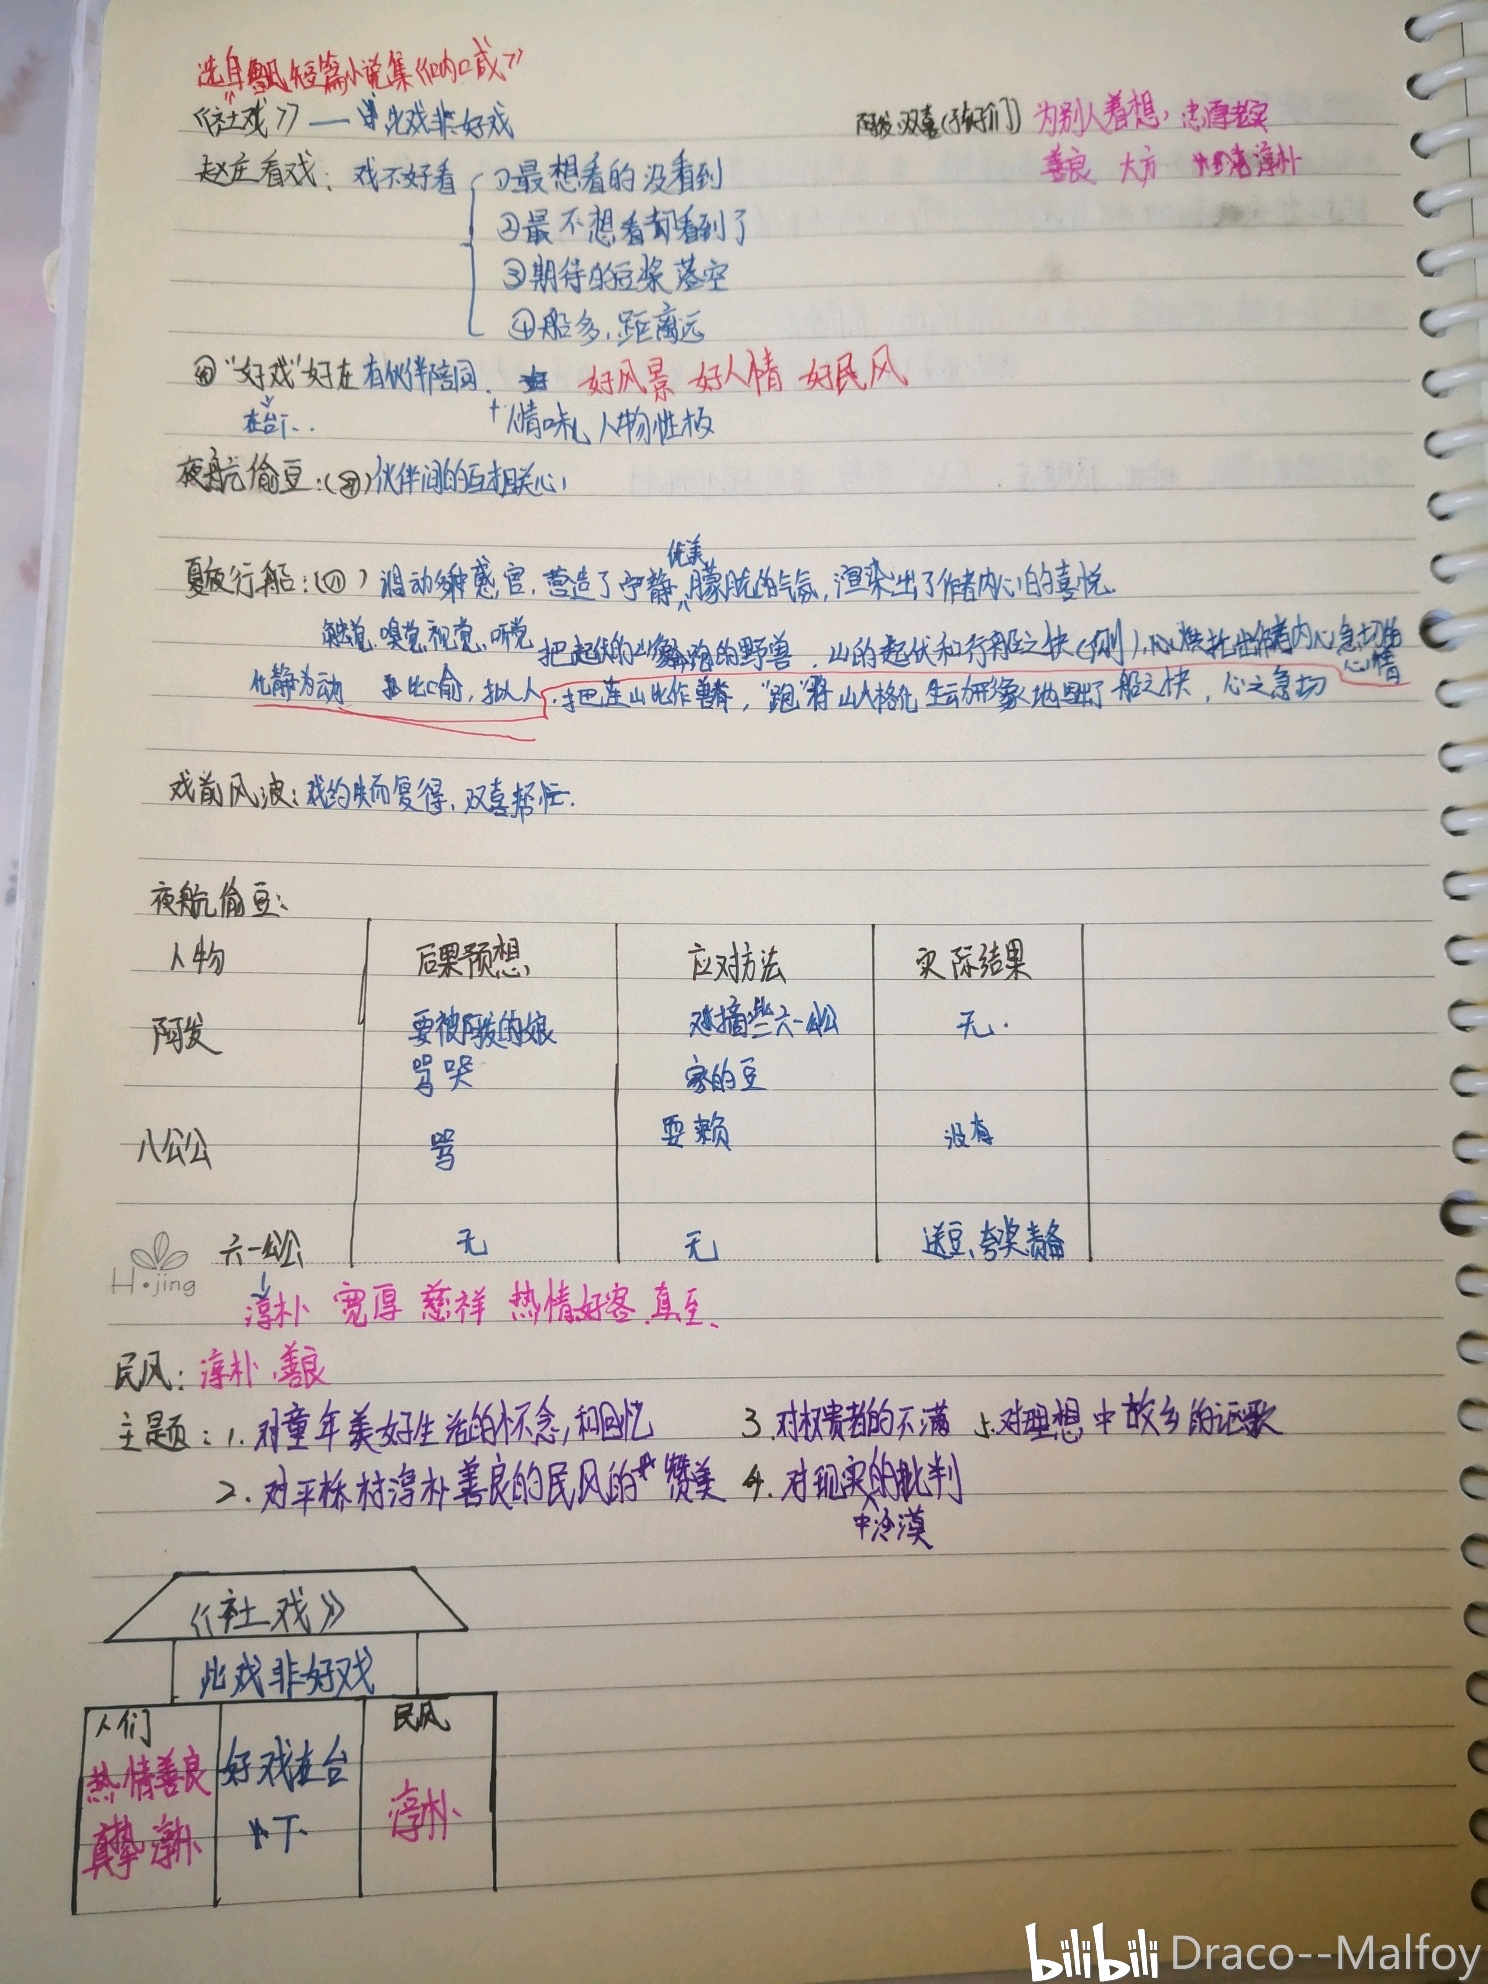 选自 短篇小说集《呐喊》
《社戏》—— 此戏非好戏
阿发,双喜(孩子们) 为别人着想,忠厚老实
善良 大方 淳朴
赵庄看戏:戏不好看 ①最想看的没看到
②最不想看却看到了
③期待的豆浆落空
④船多,距离远
"好戏"好在有伙伴陪同. 好风景 好人情 好民风
在台下.. +情味儿 人物性格
夜航偷豆:( )伙伴间的互相关心
优美
夏夜行船:( )调动多种感官,营造了宁静朦胧的气氛,渲染出了作者内心的喜悦.
触觉,嗅觉,视觉,听觉 把起伏的山 的野兽,山的起伏和行船之快( ),烘托出作者内心急切的
心情
化静为动 比喻,拟人.把连山比作兽脊,"跑"将山人格化 生动形象地写出了船之快,心之急切
戏前风波:戏约失而复得,双喜帮忙.
夜航偷豆:
人物 后果预想 应对方法 实际结果
阿发 要被阿发的娘 摘些六一公公 无.
骂哭 家的豆
八公公 骂 耍赖 没有
六一公公 无 无 送豆,夸奖
H·jing
淳朴 宽厚 慈祥 热情好客.真至、
民风:淳朴.善良
主题:1.对童年美好生活的怀念,和回忆 3.对权贵者的不满 5.对理想中故乡的讴歌
2.对平桥村淳朴善良的民风的赞美 4.对现实的批判
中冷漠
《社戏》
此戏非好戏
人们 民风
热情善良 好戏在台
真挚 淳朴 下 淳朴
bilibili Draco--Malfoy